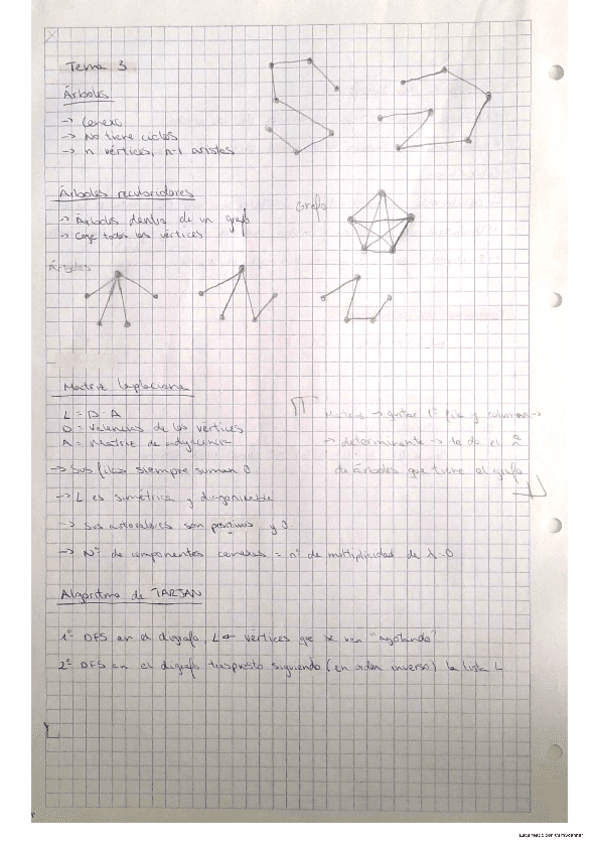 Tema 3
Árboles
-> Conexo
-> No tiene ciclos
-> n vértices, n-1 aristas
Árboles recubridores
-> Árboles dentro de un grafo
-> Coge todos los vértices
Grafo
Árboles
Matriz laplaciana
L = D-A
D = Valencias de los vértices
A = Matriz de adyacencia
-> Sus filas siempre suman 0
-> L es simétrica y diagonizable
-> Sus autovalores son positivos y 0
-> Nº de componentes conexas = nº de multiplicidad de λ=0
-> quitar 1ª fila y columna ->
-> determinante -> te da el nº
de árboles que tiene el grafo
Algoritmo de TARJAN
1º DFS en el digrafo, L vértices que se van "agotando"
2º DFS en el digrafo traspuesto siguiendo (en orden inverso) la lista L